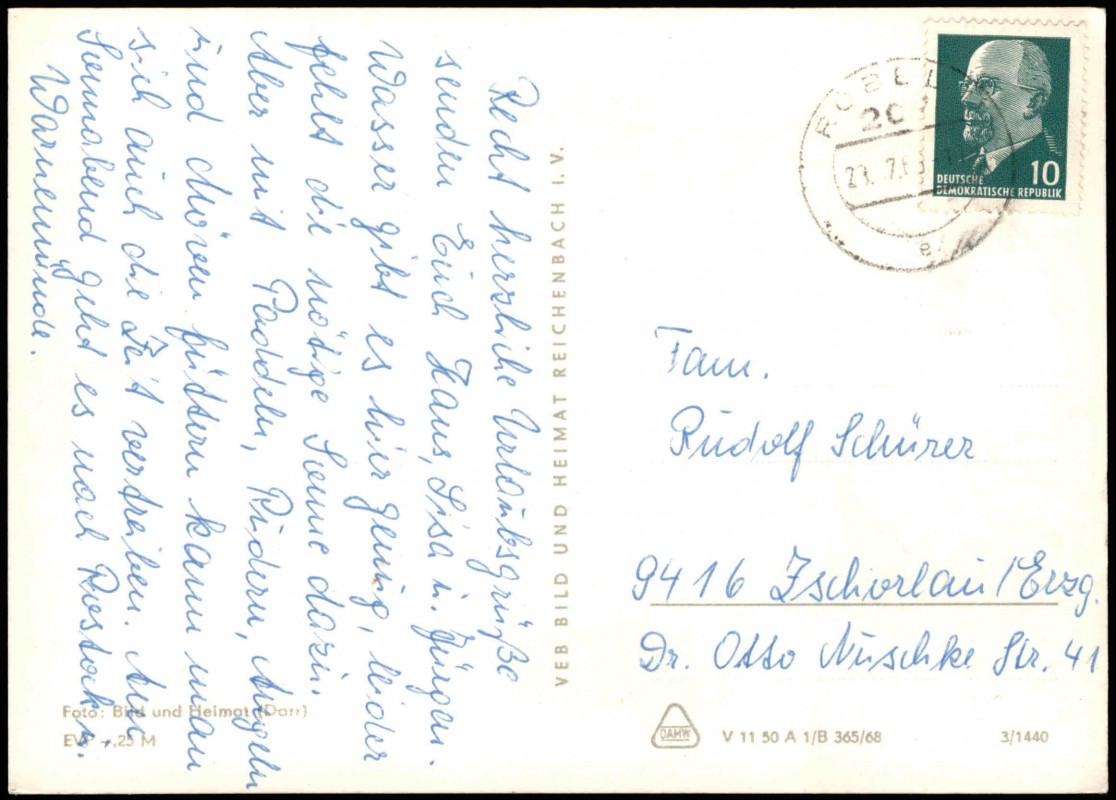 Recht herzliche Urlaubsgrüße
senden Euch Hans, Lisa u. Jürgen.
Wasser gibt es hier genug, leider
fehlt die nötige Sonne dazu.
Aber mit Paddeln, Rudern, Angeln
und Möven füttern kann man
sich auch die Zeit vertreiben. Am
Sonnabend geht es nach Rostock u.
Warnemünde.
VEB BILD UND HEIMAT REICHENBACH I. V.
Foto: Bild und Heimat (Darr)
EVP -,25 M
RÖBEL
20
e
10
DEUTSCHE
DEMOKRATISCHE REPUBLIK
Fam.
Rudolf Schürer
9416 Zschorlau/Erzg.
Dr. Otto Nuschke Str. 41
DAHW
V 11 50 A 1/B 365/68
3/1440